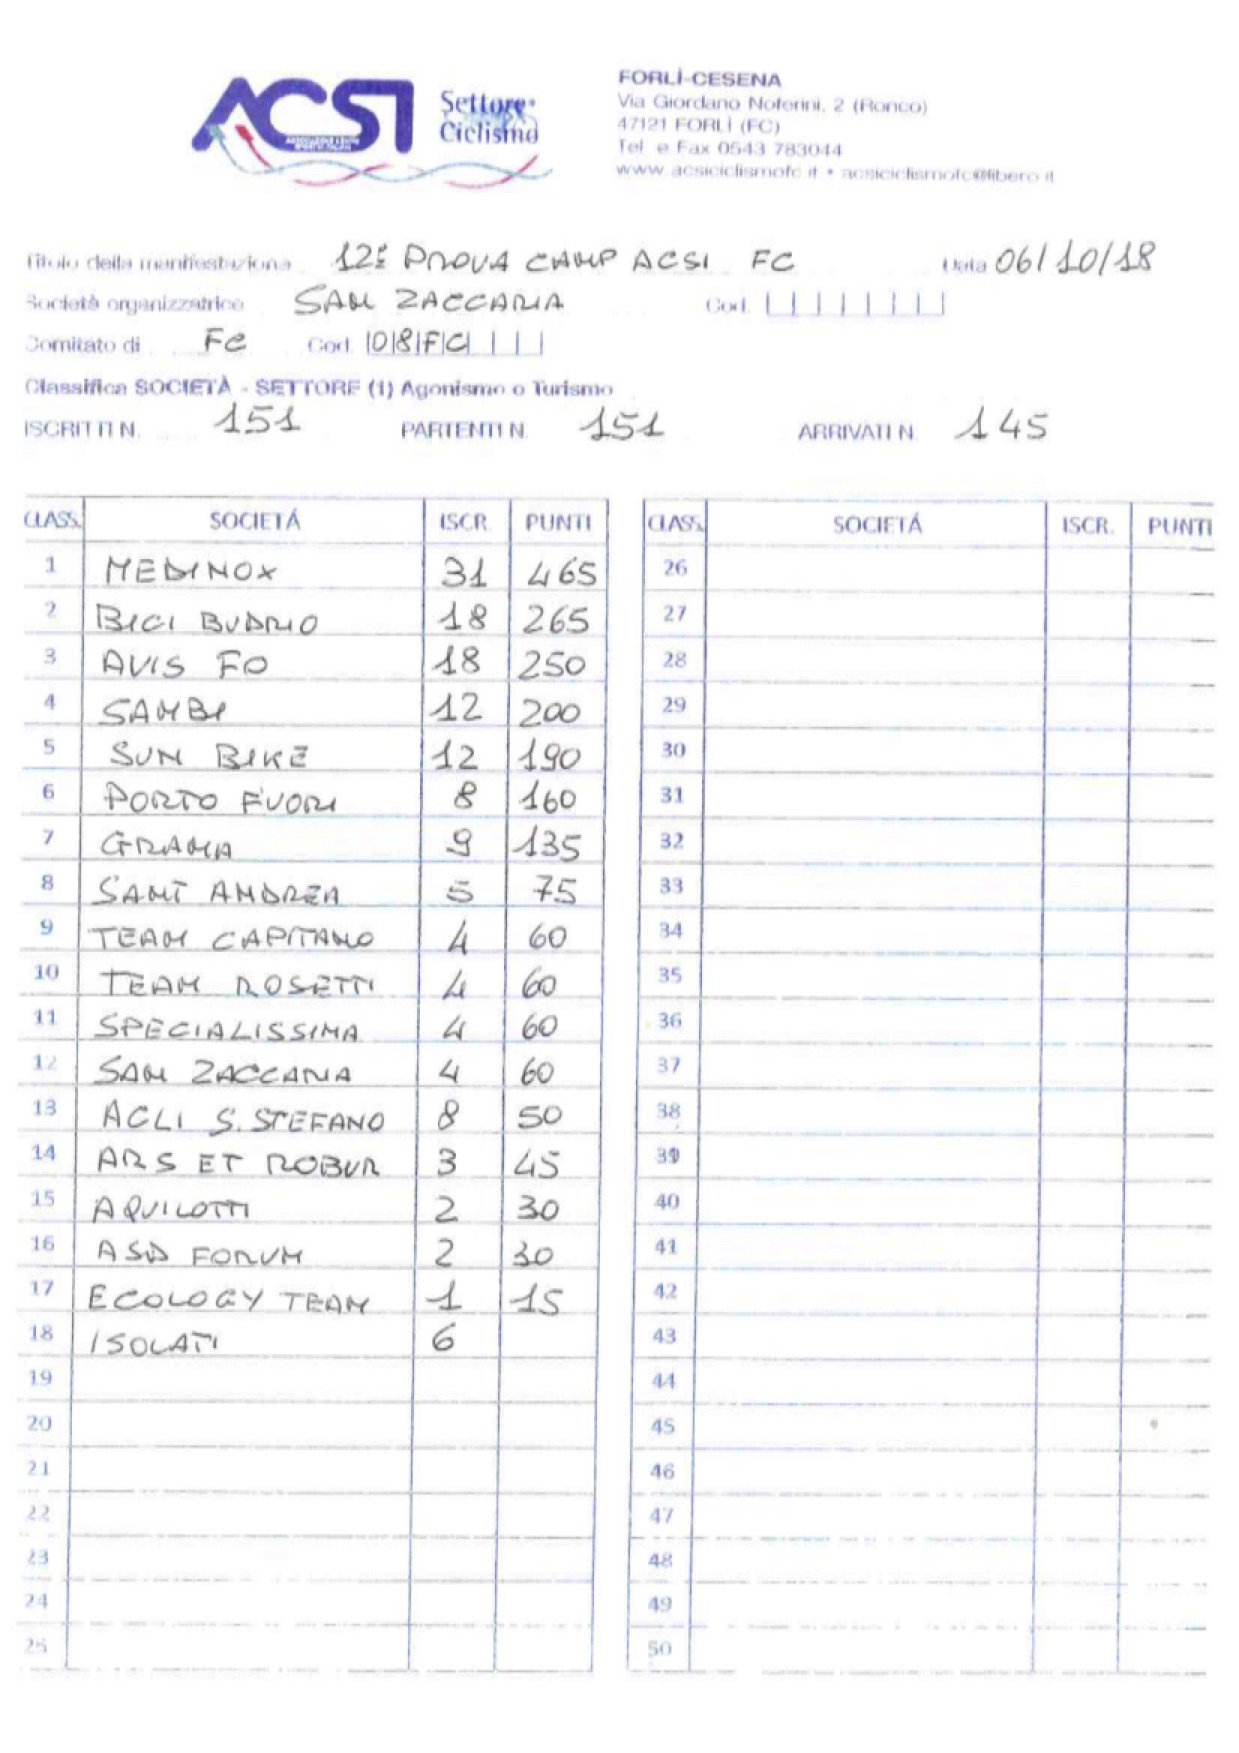 ACSI Settore Ciclismo
ASSOCIAZIONE CENTRI SPORTIVI ITALIANI
FORLÌ-CESENA
Via Giordano Noferini, 2 (Ronco)
47121 FORLÌ (FC)
Tel. e Fax 0543 783044
www.acsiciclismofc.it • acsiciclismofc@libero.it
Titolo della manifestazione 12ª PROVA CAMP ACSI FC Data 06/10/18
Società organizzatrice SAN ZACCARIA Cod.
Comitato di FC Cod. 08FC
Classifica SOCIETÀ - SETTORE (1) Agonismo o Turismo
ISCRITTI N. 151 PARTENTI N. 151 ARRIVATI N. 145
CLASS. SOCIETÁ ISCR. PUNTI
1 MEDINOX 31 465
2 BICI BUDRIO 18 265
3 AVIS FO 18 250
4 SAMBI 12 200
5 SUN BIKE 12 190
6 PORTO FUORI 8 160
7 GRAMA 9 135
8 SANT ANDREA 5 75
9 TEAM CAPITANO 4 60
10 TEAM ROSETTI 4 60
11 SPECIALISSIMA 4 60
12 SAN ZACCARIA 4 60
13 ACLI S. STEFANO 8 50
14 ARS ET ROBUR 3 45
15 AQUILOTTI 2 30
16 ASD FORUM 2 30
17 ECOLOGY TEAM 1 15
18 ISOLATI 6
19
20
21
22
23
24
25
CLASS. SOCIETÁ ISCR. PUNTI
26
27
28
29
30
31
32
33
34
35
36
37
38
39
40
41
42
43
44
45
46
47
48
49
50